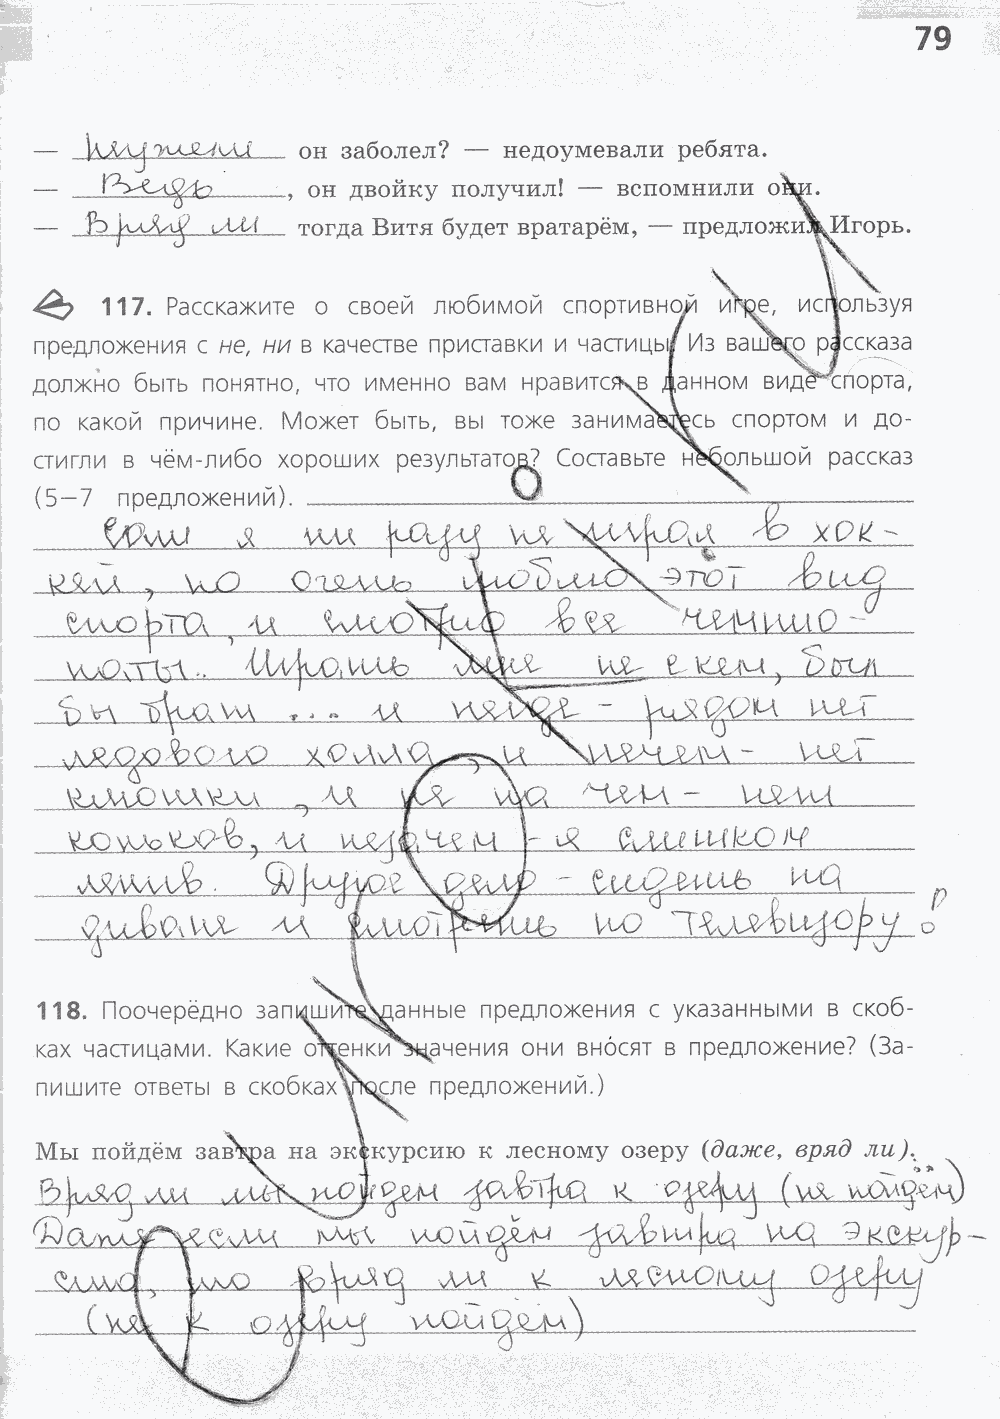 79
— Неужели он заболел? — недоумевали ребята.
— Ведь, он двойку получил! — вспомнили они.
— Вряд ли тогда Витя будет вратарём, — предложил Игорь.
117. Расскажите о своей любимой спортивной игре, используя
предложения с не, ни в качестве приставки и частицы. Из вашего рассказа
должно быть понятно, что именно вам нравится в данном виде спорта,
по какой причине. Может быть, вы тоже занимаетесь спортом и до-
стигли в чём-либо хороших результатов? Составьте небольшой рассказ
(5—7 предложений).
Сам я ни разу не играл в хок-
кей, но очень люблю этот вид
спорта, и смотрю все чемпио-
наты.. Играть мне не с кем, был
бы брат ... и негде - рядом нет
ледового холла, и нечем - нет
клюшки, и не на чем - нет
коньков, и незачем - я слишком
ленив. Другое дело - сидеть на
диване и смотреть по телевизору!
118. Поочерёдно запишите данные предложения с указанными в скоб-
ках частицами. Какие оттенки значения они вносят в предложение? (За-
пишите ответы в скобках после предложений.)
Мы пойдём завтра на экскурсию к лесному озеру (даже, вряд ли).
Вряд ли мы пойдем завтра к озеру (не пойдём)
Даже если мы пойдём завтра на экскур-
сию, то вряд ли к лесному озеру
(не к озеру пойдём)